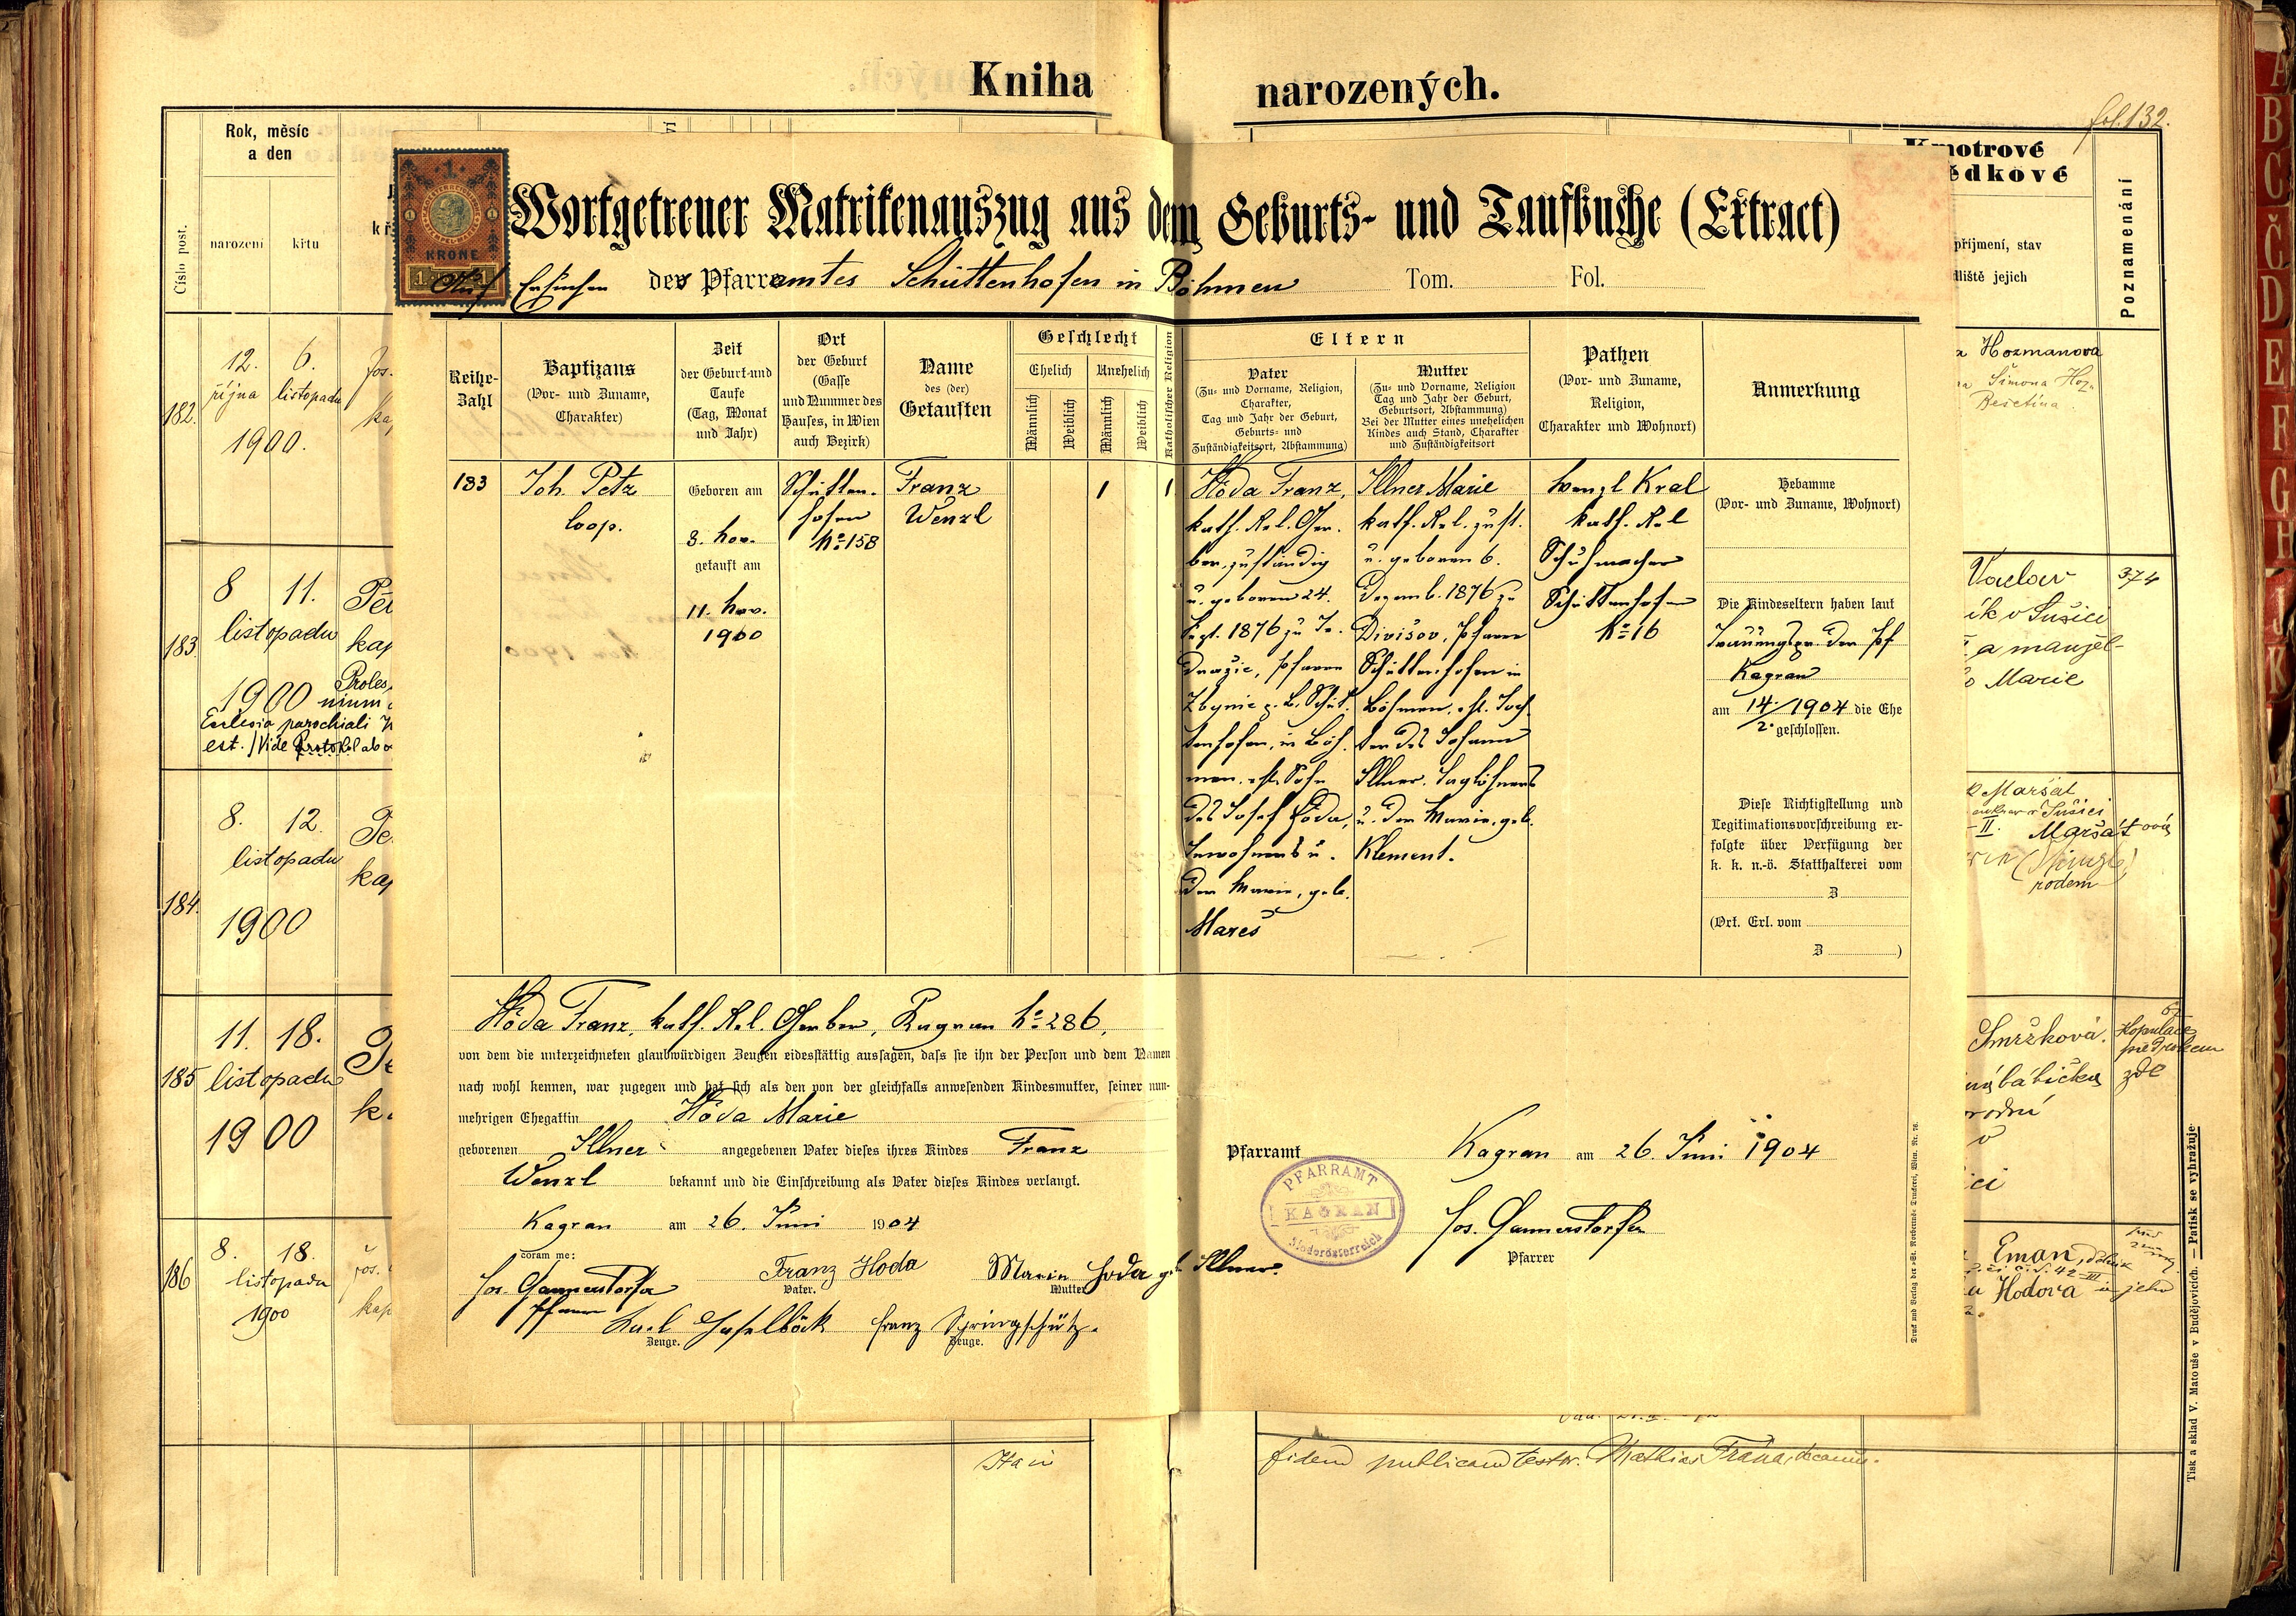 Kniha narozených.
fol. 132.
Rok, měsíc
a den
Číslo post.
narození
křtu
Kmotrové
Poznamenání
příjmení, stav
jejich
182.
12. 6.
října listopadu
1900.
Hozmanova
Šimona
183
8 11.
listopadu
1900
kap
Ecclesia parochiali
est. / Vide Protokol
Václav
374
v Sušici
a manžel-
Marie
184.
8. 12.
listopadu
1900
kap
Maršát
185
11. 18.
listopadu
1900
Smržková.
babička
zde
186
8. 18.
listopadu
1900
kap
Eman,
Hodova
1 KRONE
Wortgetreuer Matrikenauszug aus dem Geburts- und Taufbuche (Extract)
Auf Ersuchen des Pfarramtes Schüttenhofen in Böhmen Tom. Fol.
Reihe-
Zahl
Baptizans
(Vor- und Zuname,
Charakter)
Zeit
der Geburt und
Taufe
(Tag, Monat
und Jahr)
Ort
der Geburt
(Gasse
und Nummer des
Hauses, in Wien
auch Bezirk)
Name
des (der)
Getauften
Geschlecht
Ehelich Unehelich
Männlich Weiblich Männlich Weiblich
Katholischer Religion
Eltern
Vater
(Zu- und Vorname, Religion,
Charakter,
Tag und Jahr der Geburt,
Geburts- und
Zuständigkeitsort, Abstammung)
Mutter
(Zu- und Vorname, Religion
Tag und Jahr der Geburt,
Geburtsort, Abstammung)
Bei der Mutter eines unehelichen
Kindes auch Stand, Charakter
und Zuständigkeitsort
Pathen
(Vor- und Zuname,
Religion,
Charakter und Wohnort)
Anmerkung
183
Joh. Petz
Coop.
Geboren am
8. Nov.
getauft am
11. Nov.
1900
Schütten-
hofen
No 158
Franz
Wenzl
1
1
Hóda Franz,
kath. Rel. Ger-
ber, zuständig
u. geboren 24.
Sept. 1876 zu
Pfarre
Zbynic g. B. Schüt-
tenhofen, in Böh-
men, ehl. Sohn
des Josef Hóda,
Inwohners u.
der Marie, geb.
Mareš
Illner Marie
kath. Rel. zust.
u. geboren 6.
Dezemb. 1876 zu
Divišov, Pfarre
Schüttenhofen in
Böhmen, ehl. Toch-
ter des Johann
Illner, Taglöhners
u. der Marie, geb.
Klement.
Wenzl Kral
kath. Rel
Schuhmacher
Schüttenhofen
No 16
Hebamme
(Vor- und Zuname, Wohnort)
Die Kindeseltern haben laut
Trauungspr. der Pf
Kagran
am 14./2. 1904 die Ehe
geschlossen.
Diese Richtigstellung und
Legitimationsvorschreibung er-
folgte über Verfügung der
k. k. n.-ö. Statthalterei vom
Z
(Ort. Erl. vom
Z )
Hóda Franz, kath. Rel. Gerber, Kagran No 286,
von dem die unterzeichneten glaubwürdigen Zeugen eidesstättig aussagen, dass sie ihn der Person und dem Namen
nach wohl kennen, war zugegen und hat sich als den von der gleichfalls anwesenden Kindesmutter, seiner nun-
mehrigen Ehegattin Hóda Marie
geborenen Illner angegebenen Vater dieses ihres Kindes Franz
Wenzl bekannt und die Einschreibung als Vater dieses Kindes verlangt.
Kagran am 26. Juni 1904
coram me:
Jos. Gannerstorfer
Pfarrer
Franz Hoda
Vater.
Marie Hoda geb. Illner.
Mutter
Karl Haselböck
Zeuge.
Franz Springschütz.
Zeuge.
Pfarramt Kagran am 26. Juni 1904
PFARRAMT
KAGRAN
Niederösterreich
Jos. Gannerstorfer
Pfarrer
Druck und Verlag der «St. Norbertus»-Druckerei, Wien. Nr. 76.
fidem publicam testor. Mathias
Tisk a sklad V. Matouše v Budějovicích. — Patisk se vyhražuje
A
B
C
Č
D
E
F
G
H
J
K